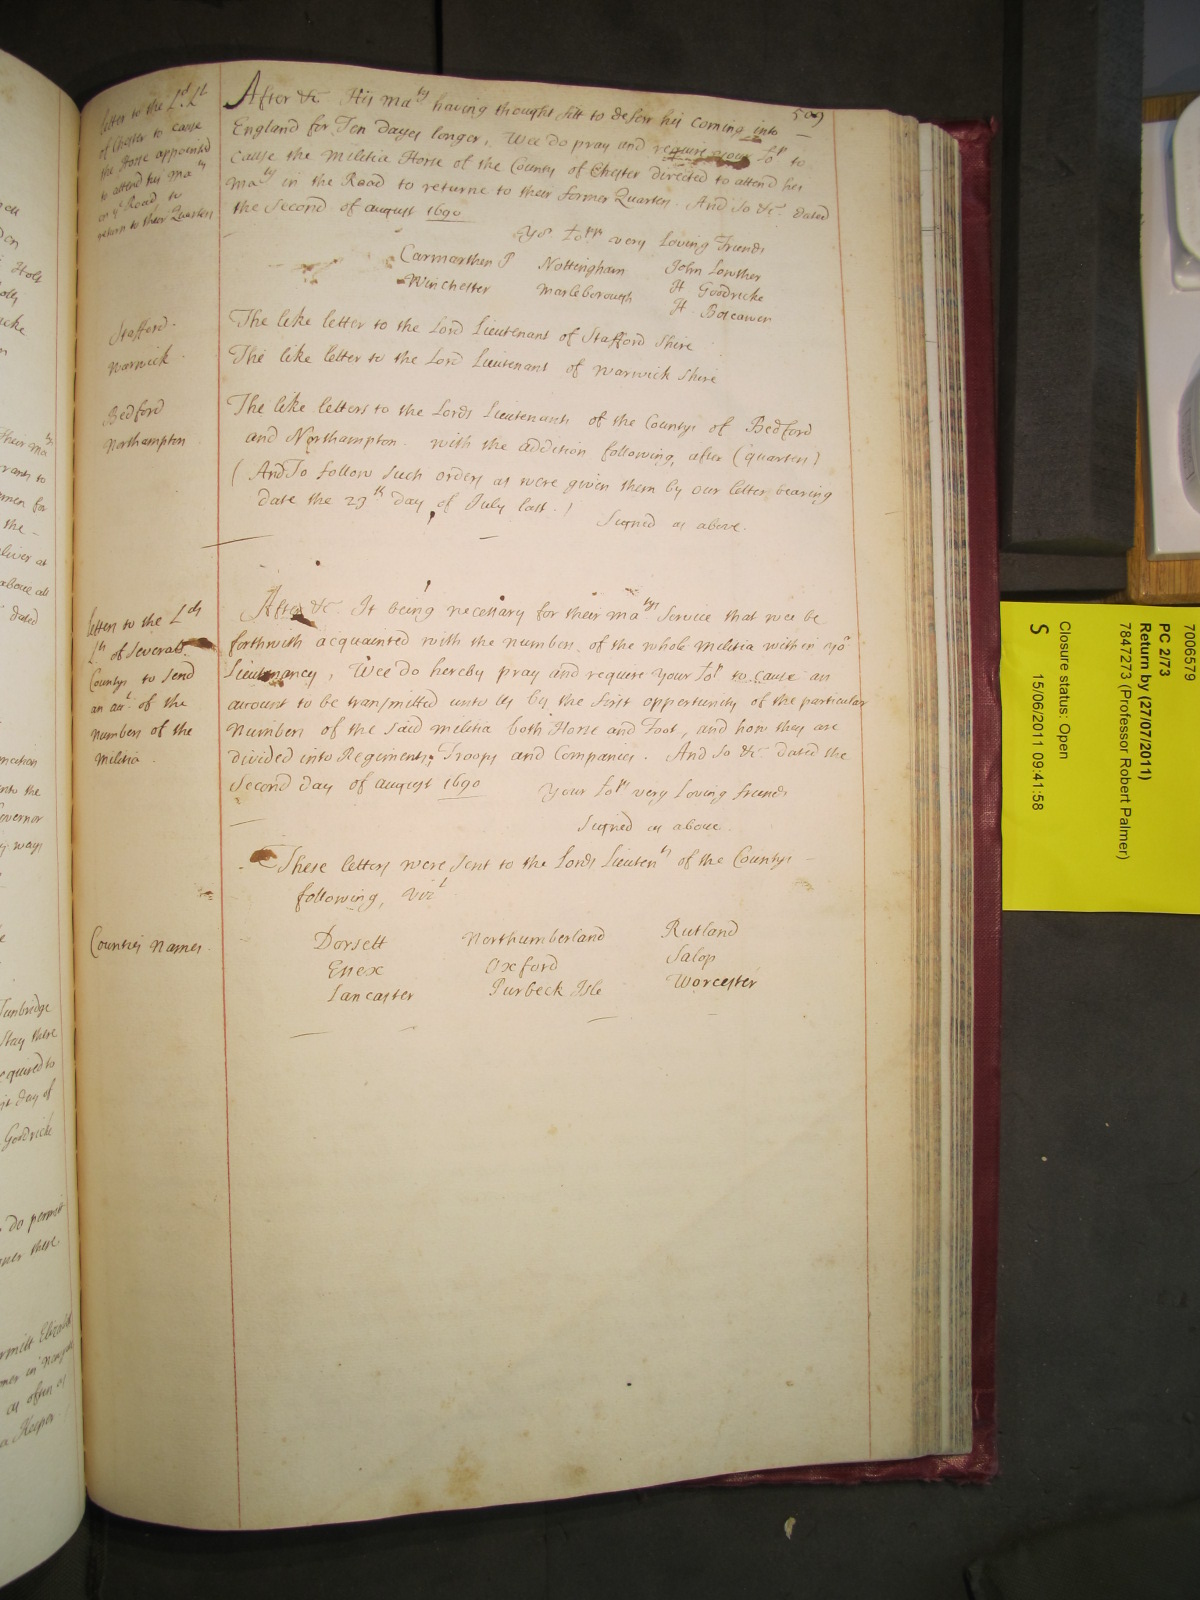 509
letter to the Ld. Lt.
of Chester to cause
the Horse appointed
to attend his Maty
on ye Road to
return to their Quarters
After &c. His Maty having thought fitt to deferr his coming into
England for Ten dayes longer, Wee do pray and require your Lop to
cause the Militia Horse of the County of Chester directed to attend his
Maty in the Road to returne to their former Quarters. And so &c. dated
the second of august 1690
Yor Lopps very Loving Friends
Carmarthen P Nottingham John Lowther
Winchester Marleborough H Goodricke
H Boscawen
Stafford.
The like letter to the Lord Lieutenant of Stafford Shire
Warwick
The like letter to the Lord Lieutenant of Warwick Shire
Bedford
Northampton
The like letters to the Lords Lieutenants of the Countys of Bedford
and Northampton. with the addition following, after (quarters)
(And To follow such orders as were given them by our letter bearing
date the 29th day of July last.)
Signed as above.
letters to the Lds
Lts of severall
Countys to send
an acct. of the
numbers of the
Militia
After &c. It being necessary for their Matys Service that wee be
forthwith acquainted with the numbers of the whole Militia within yor
Lieutenancy, Wee do hereby pray and require your Lop to cause an
account to be transmitted unto us by the first opportunity of the particular
Numbers of the said Militia both Horse and Foot, and how they are
divided into Regiments, Troops and Companies. And so &c dated the
Second day of august 1690
Your Lops very Loving friends
Signed as above.
These letters were sent to the Lords Lieutents of the Countys
following, Vizt
Counties Names.
Dorsett Northumberland Rutland
Essex Oxford Salop
Lancaster Purbeck Isle Worcester
7006579
PC 2/73
Return by (27/07/2011)
7847273 (Professor Robert Palmer)
Closure status: Open
S 15/06/2011 09:41:58